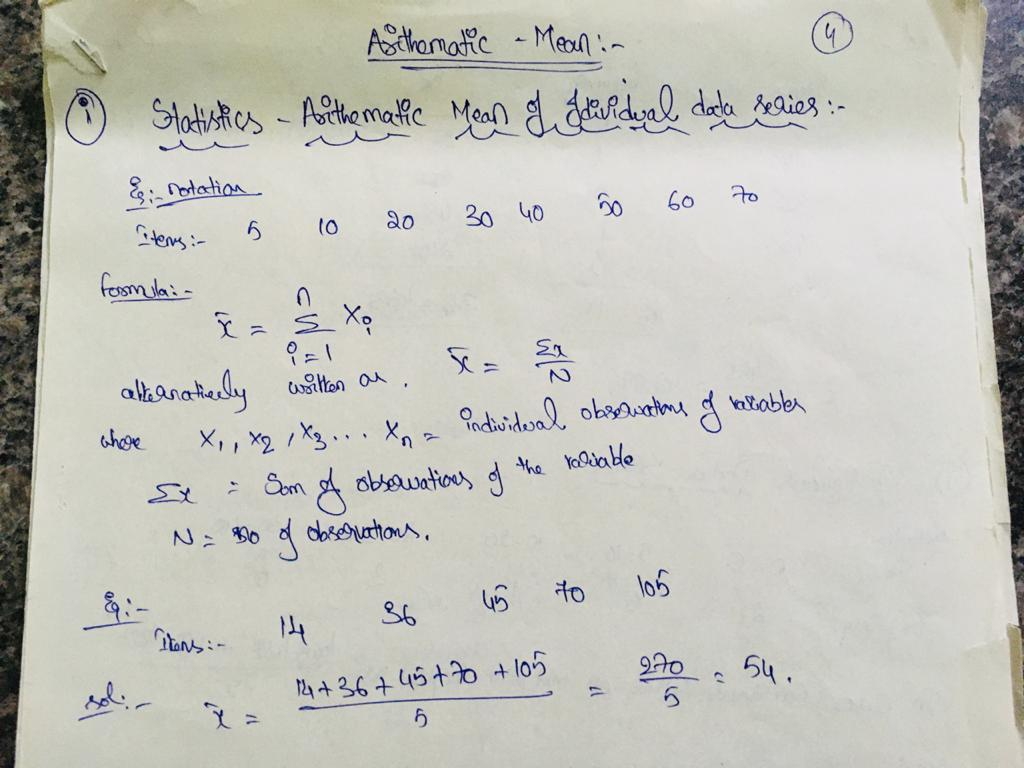 Arithematic - Mean :-
4
i Statistics - Arithematic Mean of Idividual data series :-
Eg:- notation
Items:- 5 10 20 30 40 50 60 70
formula:-
x̄ = n Σ i=1 Xi
alternatively written as, x̄ = Σx/N
where X1, X2, X3 ... Xn = individual observations of variables
Σx = Sum of observations of the variable
N = no of observations.
Eg:-
Items:- 14 36 45 70 105
sol:- x̄ = 14+36+45+70+105/5 = 270/5 = 54.